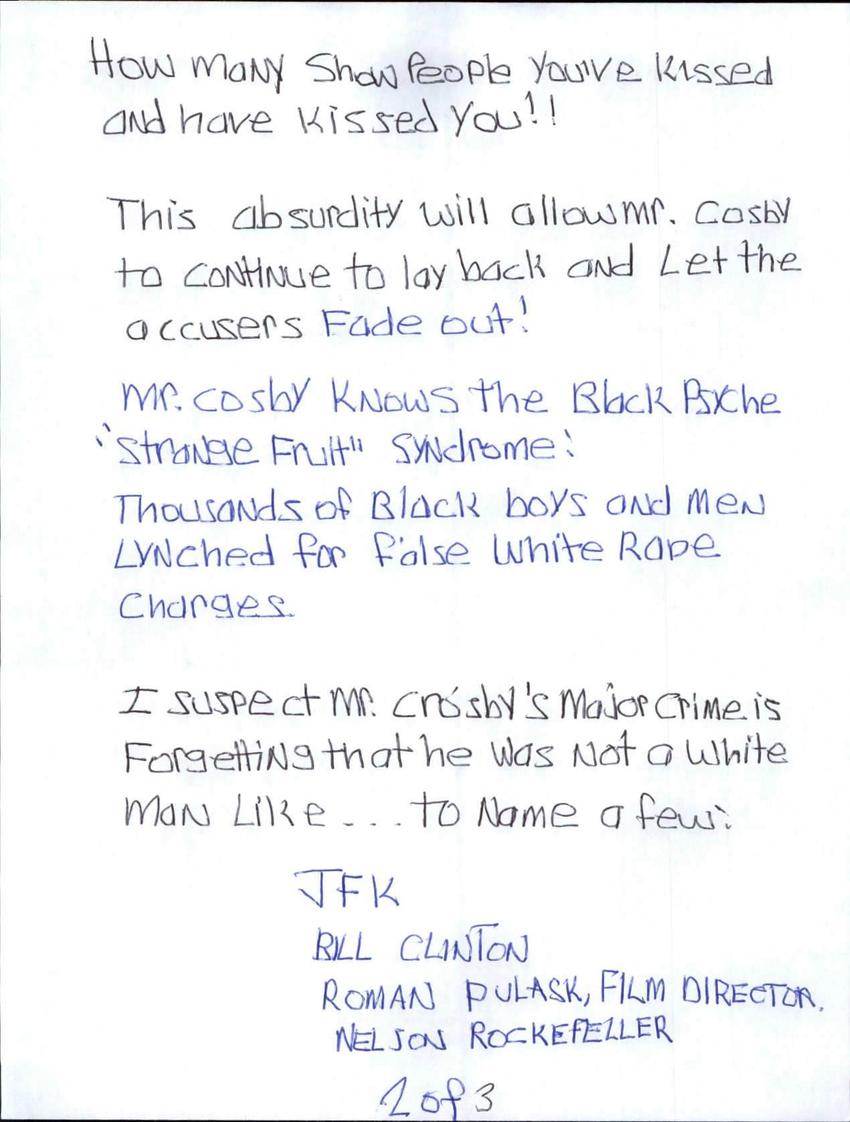 How many Show People You've Kissed
and have kissed You!!
This absurdity will allow mr. Cosby
to continue to lay back and Let the
accusers Fade out!
Mr. Cosby Knows the Black Psyche
"Strange Fruit" Syndrome:
Thousands of Black boys and Men
Lynched for false White Rape
Charges.
I suspect Mr. Crosby's Major Crime is
Forgetting that he was Not a White
Man Like ... to Name a few:
JFK
BILL CLINTON
ROMAN PULASK, FILM DIRECTOR.
NELSON ROCKEFELLER
2 of 3